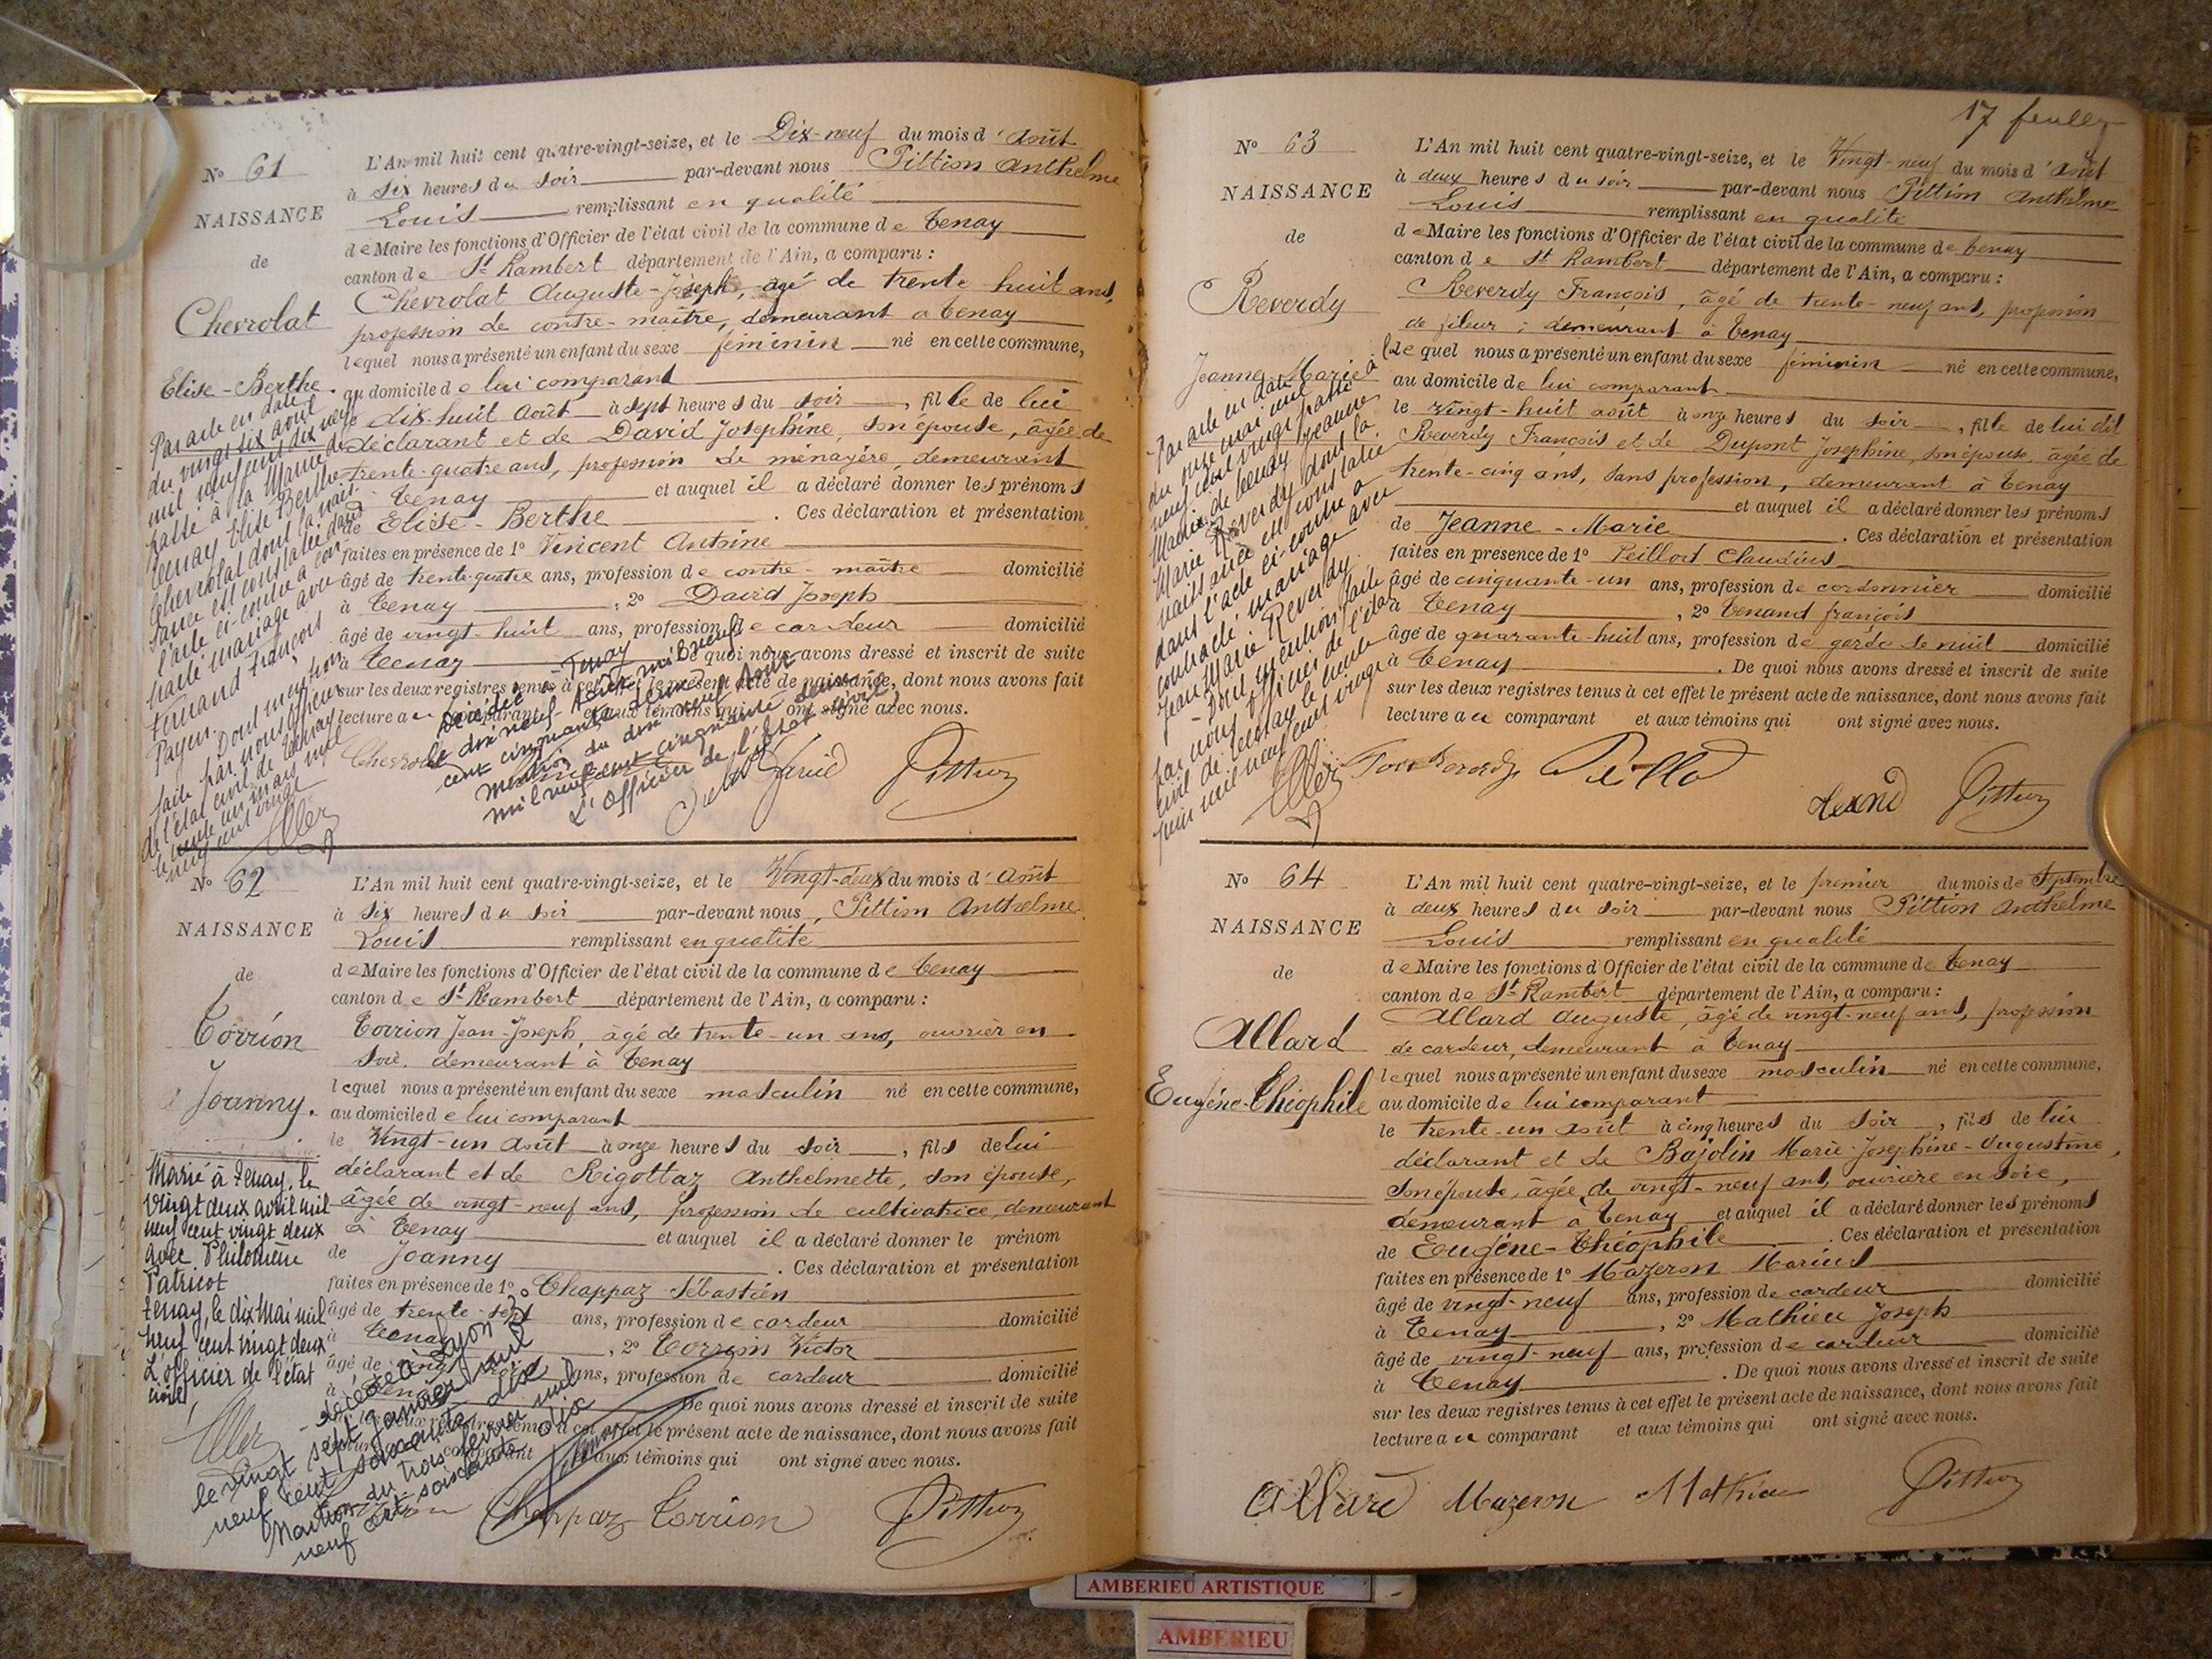 N° 61
NAISSANCE
de
Chevrolat
Elise-Berthe.
L'An mil huit cent quatre-vingt-seize, et le Dix-neuf du mois d'Août
à six heures du soir par-devant nous Pittion Anthelme
Louis remplissant en qualité
de Maire les fonctions d'Officier de l'état civil de la commune de Tenay
canton de St Rambert département de l'Ain, a comparu :
Chevrolat Auguste-Joseph, âgé de trente huit ans,
profession de contre-maître, demeurant à Tenay
lequel nous a présenté un enfant du sexe féminin né en cette commune,
au domicile de lui comparant
le dix-huit Août à sept heures du soir, fille de lui
déclarant et de David Josephine, son épouse, âgée de
trente-quatre ans, profession de ménagère, demeurant
à Tenay et auquel il a déclaré donner les prénoms
de Elise-Berthe. Ces déclaration et présentation
faites en présence de 1° Vincent Antoine
âgé de trente-quatre ans, profession de contre-maître domicilié
à Tenay, 2° David Joseph
âgé de vingt-huit ans, profession de cardeur domicilié
à Tenay De quoi nous avons dressé et inscrit de suite
sur les deux registres tenus à cet effet le présent acte de naissance, dont nous avons fait
lecture au comparant et aux témoins qui ont signé avec nous.
Par acte en date
du vingt six avril
mil neuf cent dix neuf
passé à la Mairie de
Tenay Elise Berthe
Chevrolat dont la nais-
sance est constatée dans
l'acte ci-contre a con
tracté mariage avec
Fernand François
Payen.
Dont mention
faite par nous Officier
de l'état civil de Tenay
le un mars mil
neuf cent vingt
Décédée à Tenay
le dix neuf mil neuf
cent cinquante deux
Mention du dix neuf Août
mil neuf cent cinquante deux
L'Officier de l'état civil,
David Pittion
N° 62
NAISSANCE
de
Torrion
Joanny.
L'An mil huit cent quatre-vingt-seize, et le Vingt-deux du mois d'Août
à six heures du soir par-devant nous, Pittion Anthelme
Louis remplissant en qualité
de Maire les fonctions d'Officier de l'état civil de la commune de Tenay
canton de St Rambert département de l'Ain, a comparu :
Torrion Jean-Joseph, âgé de trente-un ans, ouvrier en
soie. demeurant à Tenay
lequel nous a présenté un enfant du sexe masculin né en cette commune,
au domicile de lui comparant
le Vingt-un Août à onze heures du soir, fils de lui
déclarant et de Rigottaz Anthelmette, son épouse,
âgée de vingt-neuf ans, profession de cultivatrice, demeurant
à Tenay et auquel il a déclaré donner le prénom
de Joanny. Ces déclaration et présentation
faites en présence de 1° Chappaz Sébastien
âgé de trente-sept ans, profession de cardeur domicilié
à Tenay, 2° Torrion Victor
âgé de vingt ans, profession de cardeur domicilié
à Tenay De quoi nous avons dressé et inscrit de suite
sur les deux registres tenus à cet effet le présent acte de naissance, dont nous avons fait
lecture au comparant et aux témoins qui ont signé avec nous.
Marié à Tenay, le
vingt deux avril mil
neuf cent vingt deux
avec Philomène
Patricot
Tenay, le dix Mai mil
neuf cent vingt deux
L'officier de l'état
civil,
décédé à Lyon 3
le vingt sept janvier mil
neuf cent soixante dix
Mention du trois février mil
neuf cent soixante dix
Torrion Chappaz Torrion Pittion
17 feuillet
N° 63
NAISSANCE
de
Reverdy
Jeanne-Marie
L'An mil huit cent quatre-vingt-seize, et le Vingt-neuf du mois d'Août
à deux heures du soir par-devant nous Pittion Anthelme
Louis remplissant en qualité
de Maire les fonctions d'Officier de l'état civil de la commune de Tenay
canton de St Rambert département de l'Ain, a comparu :
Reverdy François, âgé de trente-neuf ans, profession
de fileur ; demeurant à Tenay
lequel nous a présenté un enfant du sexe féminin né en cette commune,
au domicile de lui comparant
le vingt-huit août à onze heures du soir, fille de lui dit
Reverdy François et de Dupont Josephine, son épouse, âgée de
trente-cinq ans, sans profession, demeurant à Tenay
et auquel il a déclaré donner les prénoms
de Jeanne-Marie. Ces déclaration et présentation
faites en présence de 1° Peillod Claudius
âgé de cinquante-un ans, profession de cordonnier domicilié
à Tenay, 2° Tenand françois
âgé de quarante-huit ans, profession de garde de nuit domicilié
à Tenay. De quoi nous avons dressé et inscrit de suite
sur les deux registres tenus à cet effet le présent acte de naissance, dont nous avons fait
lecture au comparant et aux témoins qui ont signé avec nous.
Par acte en date
du onze mai mil
neuf cent vingt passé à
Mairie de Tenay Jeanne
Marie Reverdy dont la
naissance est constatée
dans l'acte ci-contre a
contracté mariage avec
Jean Marie Reverdy.
Dont mention faite
par nous Officier de l'état
civil de Tenay le
juin mil neuf cent vingt
Pittion
N° 64
NAISSANCE
de
Allard
Eugène-Théophile
L'An mil huit cent quatre-vingt-seize, et le premier du mois de Septembre
à deux heures du soir par-devant nous Pittion Anthelme
Louis remplissant en qualité
de Maire les fonctions d'Officier de l'état civil de la commune de Tenay
canton de St Rambert département de l'Ain, a comparu :
Allard Auguste, âgé de vingt-neuf ans, profession
de cardeur, demeurant à Tenay
lequel nous a présenté un enfant du sexe masculin né en cette commune,
au domicile de lui comparant
le trente-un août à cinq heures du soir, fils de lui
déclarant et de Bajolin Marie-Josephine-Augustine,
son épouse, âgée de vingt-neuf ans, ouvrière en soie,
demeurant à Tenay et auquel il a déclaré donner les prénoms
de Eugène-Théophile. Ces déclaration et présentation
faites en présence de 1° Mazeron Marius
âgé de vingt-neuf ans, profession de cardeur domicilié
à Tenay, 2° Mathieu Joseph
âgé de vingt-neuf ans, profession de cardeur domicilié
à Tenay. De quoi nous avons dressé et inscrit de suite
sur les deux registres tenus à cet effet le présent acte de naissance, dont nous avons fait
lecture au comparant et aux témoins qui ont signé avec nous.
Allard Mazeron Mathieu Pittion
AMBERIEU ARTISTIQUE
AMBERIEU